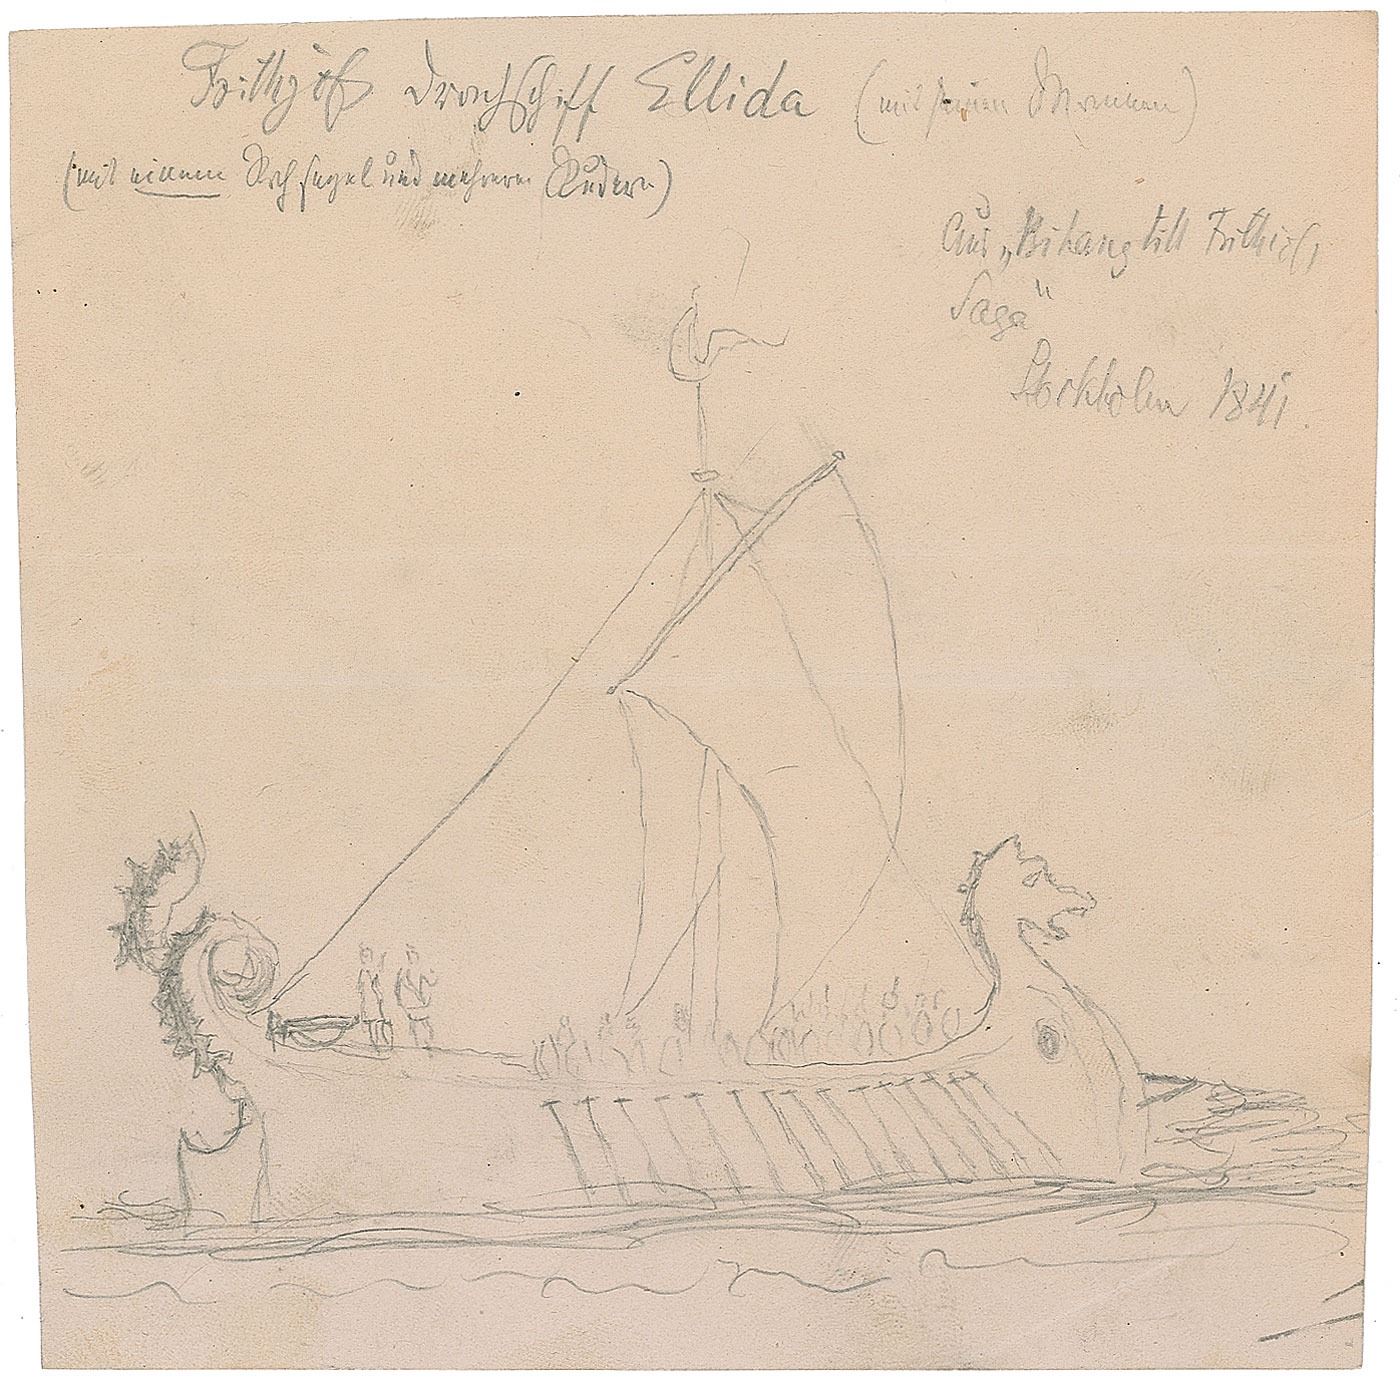 Frithjof Drachschiff Ellida (mit seinen Mannen)
(mit einem Rahsegel und mehreren Rudern)
Aus „Bihang till Frithiofs
Saga"
Stockholm 1841.